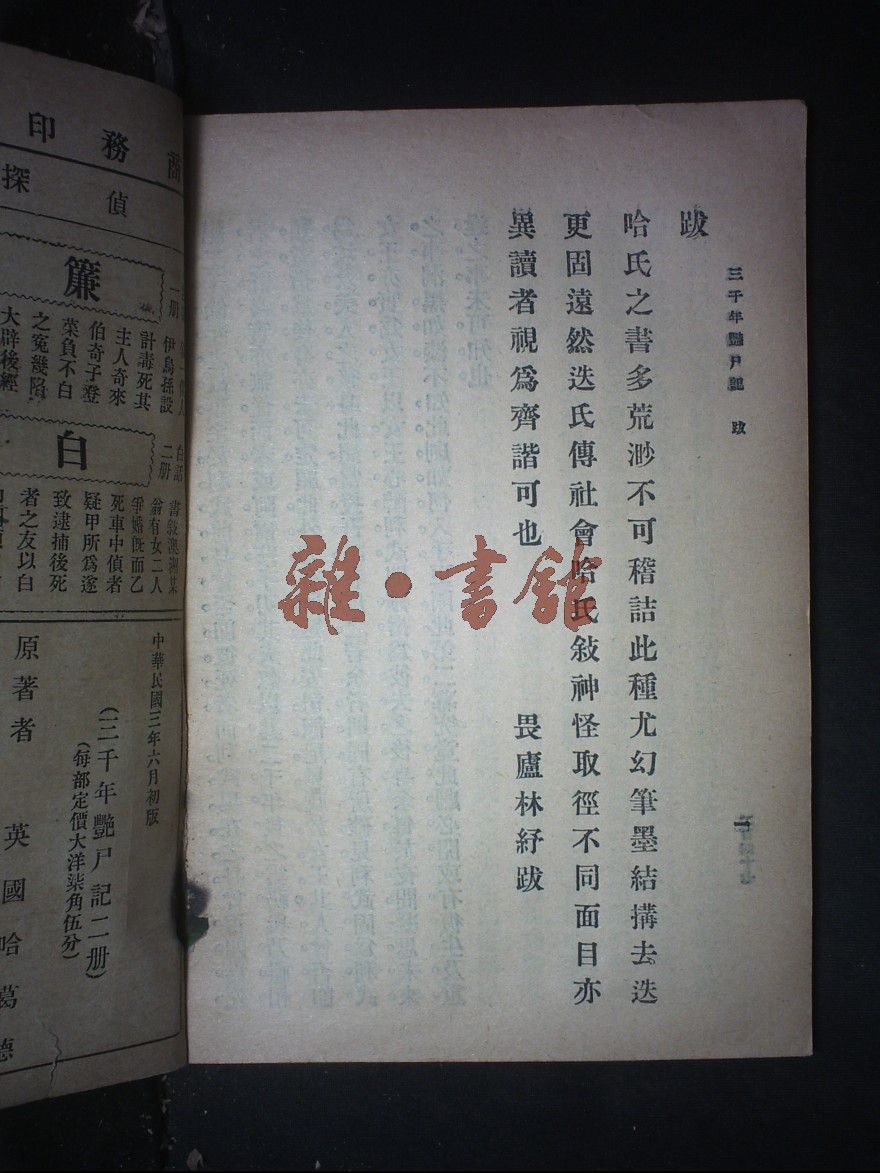 三千年艷尸記　跋
跋
哈氏之書多荒渺不可稽詰此種尤幻筆墨結搆去迭
更固遠然迭氏傳社會哈氏敍神怪取徑不同面目亦
異讀者視爲齊諧可也
畏廬林紓跋
一
雜·書館
商務印
偵探
簾
一册
伊烏孫設
計毒死其
主人奇來
伯奇子登
榮負不白
之寃幾陷
大辟後經
白
白話
二册
書敍澳洲某
翁有女二人
爭婚旣而乙
死車中偵者
疑甲所爲遂
致逮捕後死
者之友以白
中華民國三年六月初版
(三千年艷尸記二册)
(每部定價大洋柒角伍分)
原著者
英國哈葛德